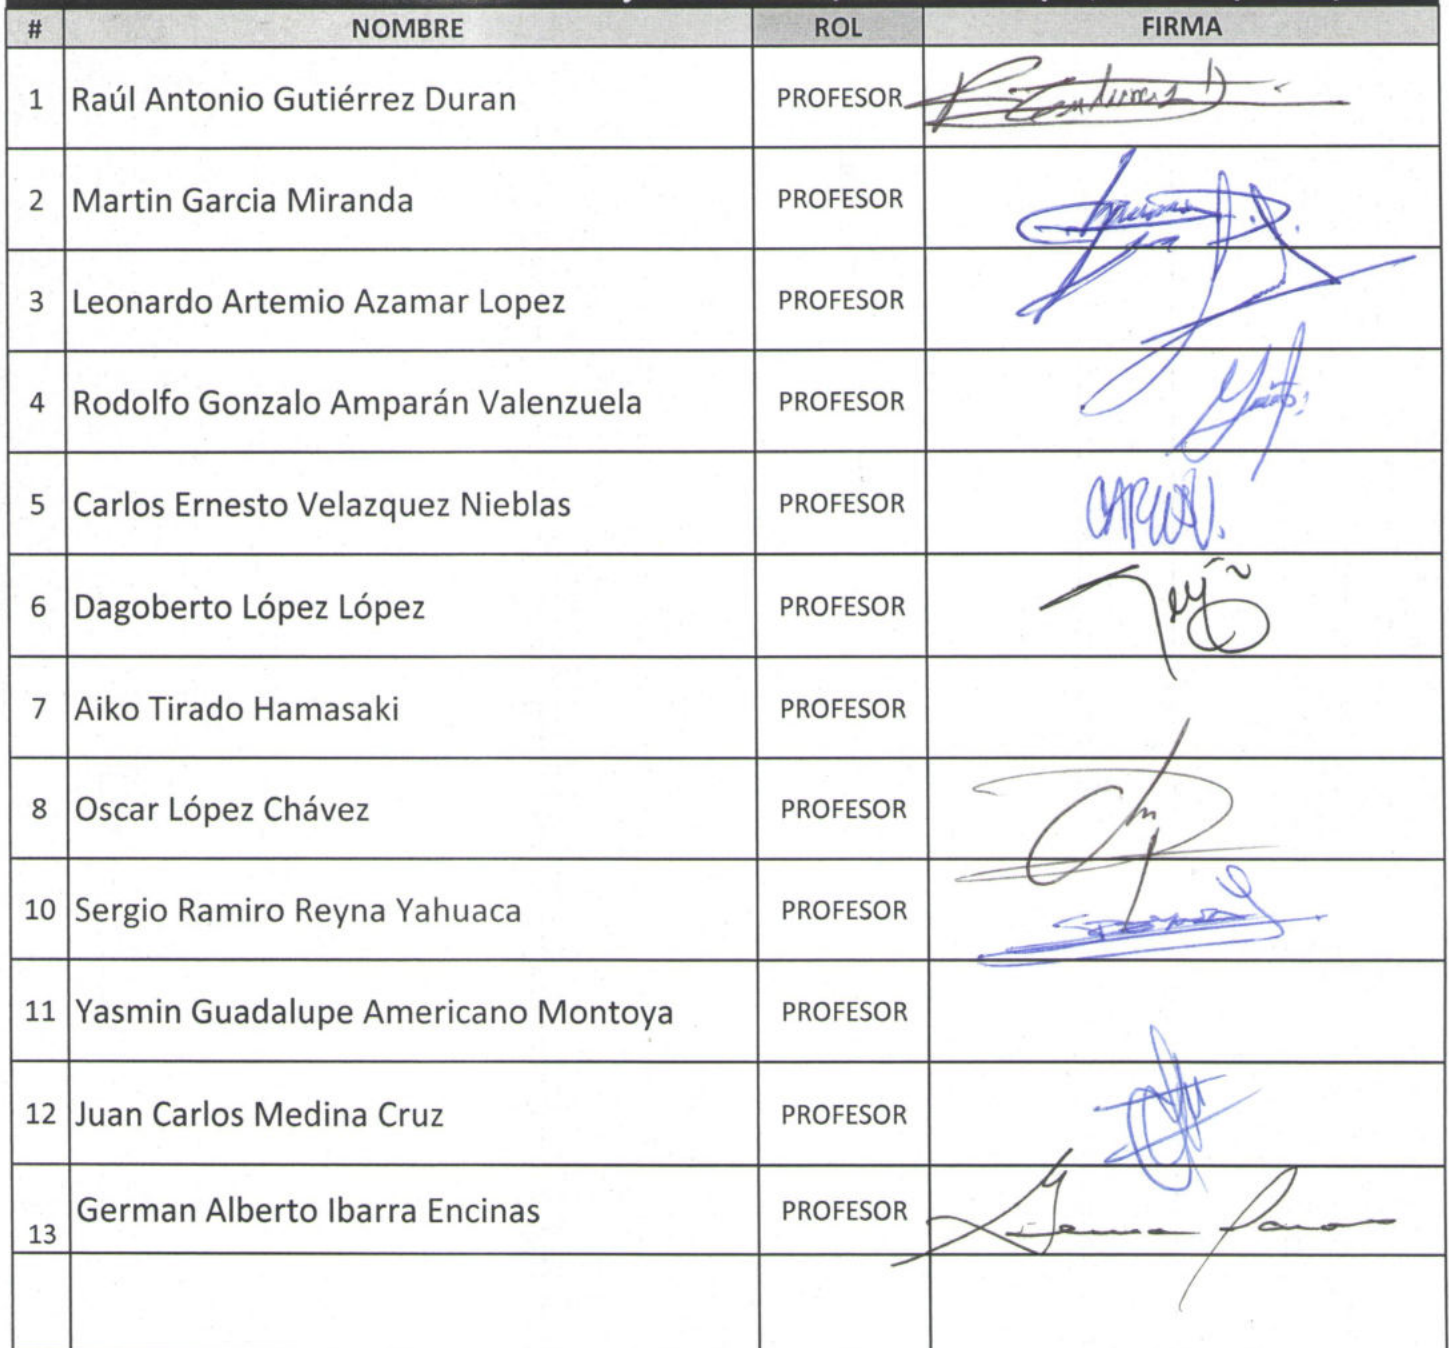 # NOMBRE ROL FIRMA
1 Raúl Antonio Gutiérrez Duran PROFESOR
2 Martin Garcia Miranda PROFESOR
3 Leonardo Artemio Azamar Lopez PROFESOR
4 Rodolfo Gonzalo Amparán Valenzuela PROFESOR
5 Carlos Ernesto Velazquez Nieblas PROFESOR
6 Dagoberto López López PROFESOR
7 Aiko Tirado Hamasaki PROFESOR
8 Oscar López Chávez PROFESOR
10 Sergio Ramiro Reyna Yahuaca PROFESOR
11 Yasmin Guadalupe Americano Montoya PROFESOR
12 Juan Carlos Medina Cruz PROFESOR
13 German Alberto Ibarra Encinas PROFESOR